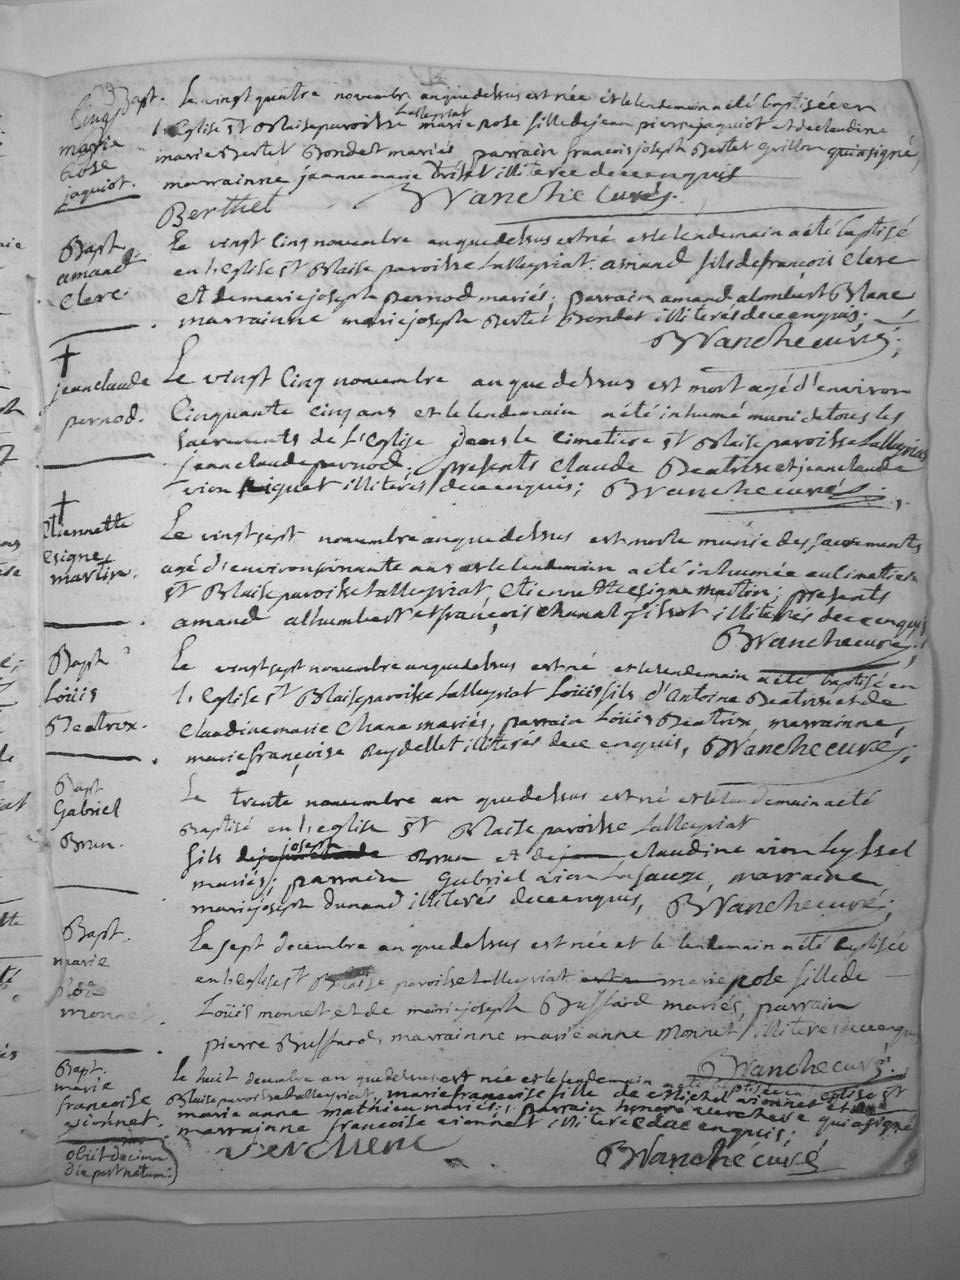 Bapt. Le vingt quatre novembre an que dessus est née et le lendemain a été baptisée en
marie l'Eglise St Blaise paroisse Lalleyriat marie rose fille de jean pierre jaquiot et de claudine
rose marie Bertet Bondet mariés, parrain françois joseph Bertet grillon qui a signé,
jaquiot. marrainne jeanne marie illiterée de ce enquis
Berthet BVanche Curé.
Bapt Le vingt Cinq novembre an que dessus est né et le lendemain a été baptisé
amand en l'Eglise St Blaise paroisse Lalleyriat. amand fils de françois Clerc
Clerc. et de marie joseph pernod mariés; parrain amand alombert Blanc
marrainne marie joseph Bertet Bondet illiterés de ce enquis.
BVanche curé;
jean claude Le vingt Cinq novembre an que dessus est mort agé d'environ
pernod. Cinquante cinq ans et le lendemain a été inhumé muni de tous les
sacrements de l'Eglise dans le cimetiere St Blaise paroisse Lalleyriat
jean claude pernod; presents claude Beatrix et jean claude
vion piquet illiterés de ce enquis; BVanche curé.
Etiennette Le vingt sept novembre an que dessus est morte munie des sacrements
esigne agé d'environ ans et le lendemain a été inhumée au cimetiere
martin. St Blaise paroisse Lalleyriat, Etiennette esigne martin; presents
amand alhumbert et françois illiterés de ce enquis
BVanche curé;
Bapt Le vingt sept novembre an que dessus est né et le lendemain a été baptisé en
Loüis l'Eglise St Blaise paroisse Lalleyriat Loüis fils d'Antoine Beatrix et de
Beatrix. Claudine marie Chane mariés, parrain Loüis Beatrix, marrainne
marie françoise Reydellet illiterés de ce enquis, BVanche curé;
Bapt Le trente novembre an que dessus est né et le lendemain a été
Gabriel Baptisé en l'Eglise St Blaise paroisse Lalleyriat
Brun. fils de joseph Brun et de claudine vion Leyssel
mariés; parrain Gabriel vion marraine
marie joseph dunand illiterés de ce enquis, BVanche curé;
Bapt. Le sept decembre an que dessus est née et le lendemain a été baptisée
marie en l'Eglise St Blaise paroisse Lalleyriat marie rose fille de
rose Loüis monnet et de marie joseph Bussard mariés, parrain
monnet pierre Bussard, marrainne marie anne monnet, illiterés de ce enquis
BVanche curé.
Bapt. Le huit decembre an que dessus est née et le lendemain a été baptisée en eglise St
marie Blaise paroisse Lalleyriat, marie françoise fille de Michel vionnet et de
françoise marie anne mathieu mariés; parrain honoré verchere qui a signé
vionnet. marrainne françoise vionnet illiterée de ce enquis;
obiit decima verchere BVanche curé
die post natum.